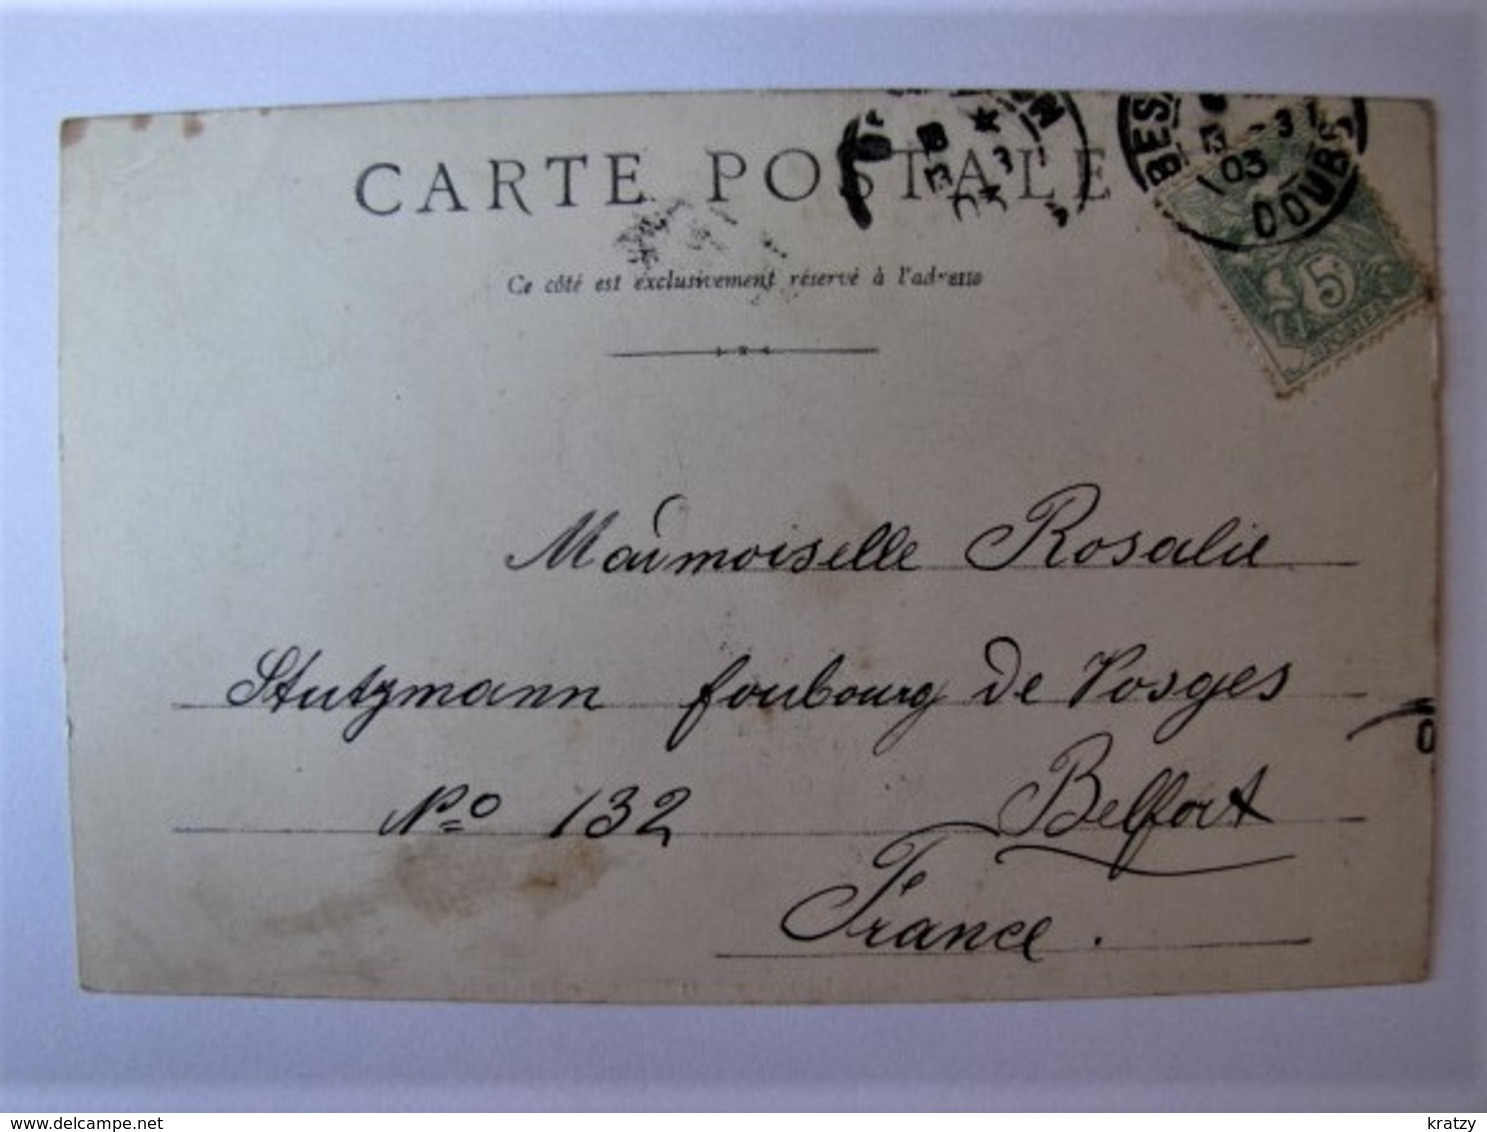 CARTE POSTALE
Ce côté est exclusivement réservé à l'adresse
BES
03
DOUBS
5
POSTES
Maidmoiselle Rosalie
Stutzmann foubourg de Vosges
No 132 Belfort
France.
delcampe.net
kratzy